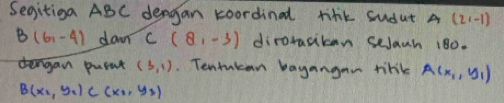 Segitiga ABC dengan koordinat titik sudut A (2,-1)
B (6,-4) dan C (8,-3) dirotasikan sejauh 180°
dengan pusat (3,1). Tentukan bayangan titik A(x₁, y₁)
B(x₂, y₂) C (x₃, y₃)